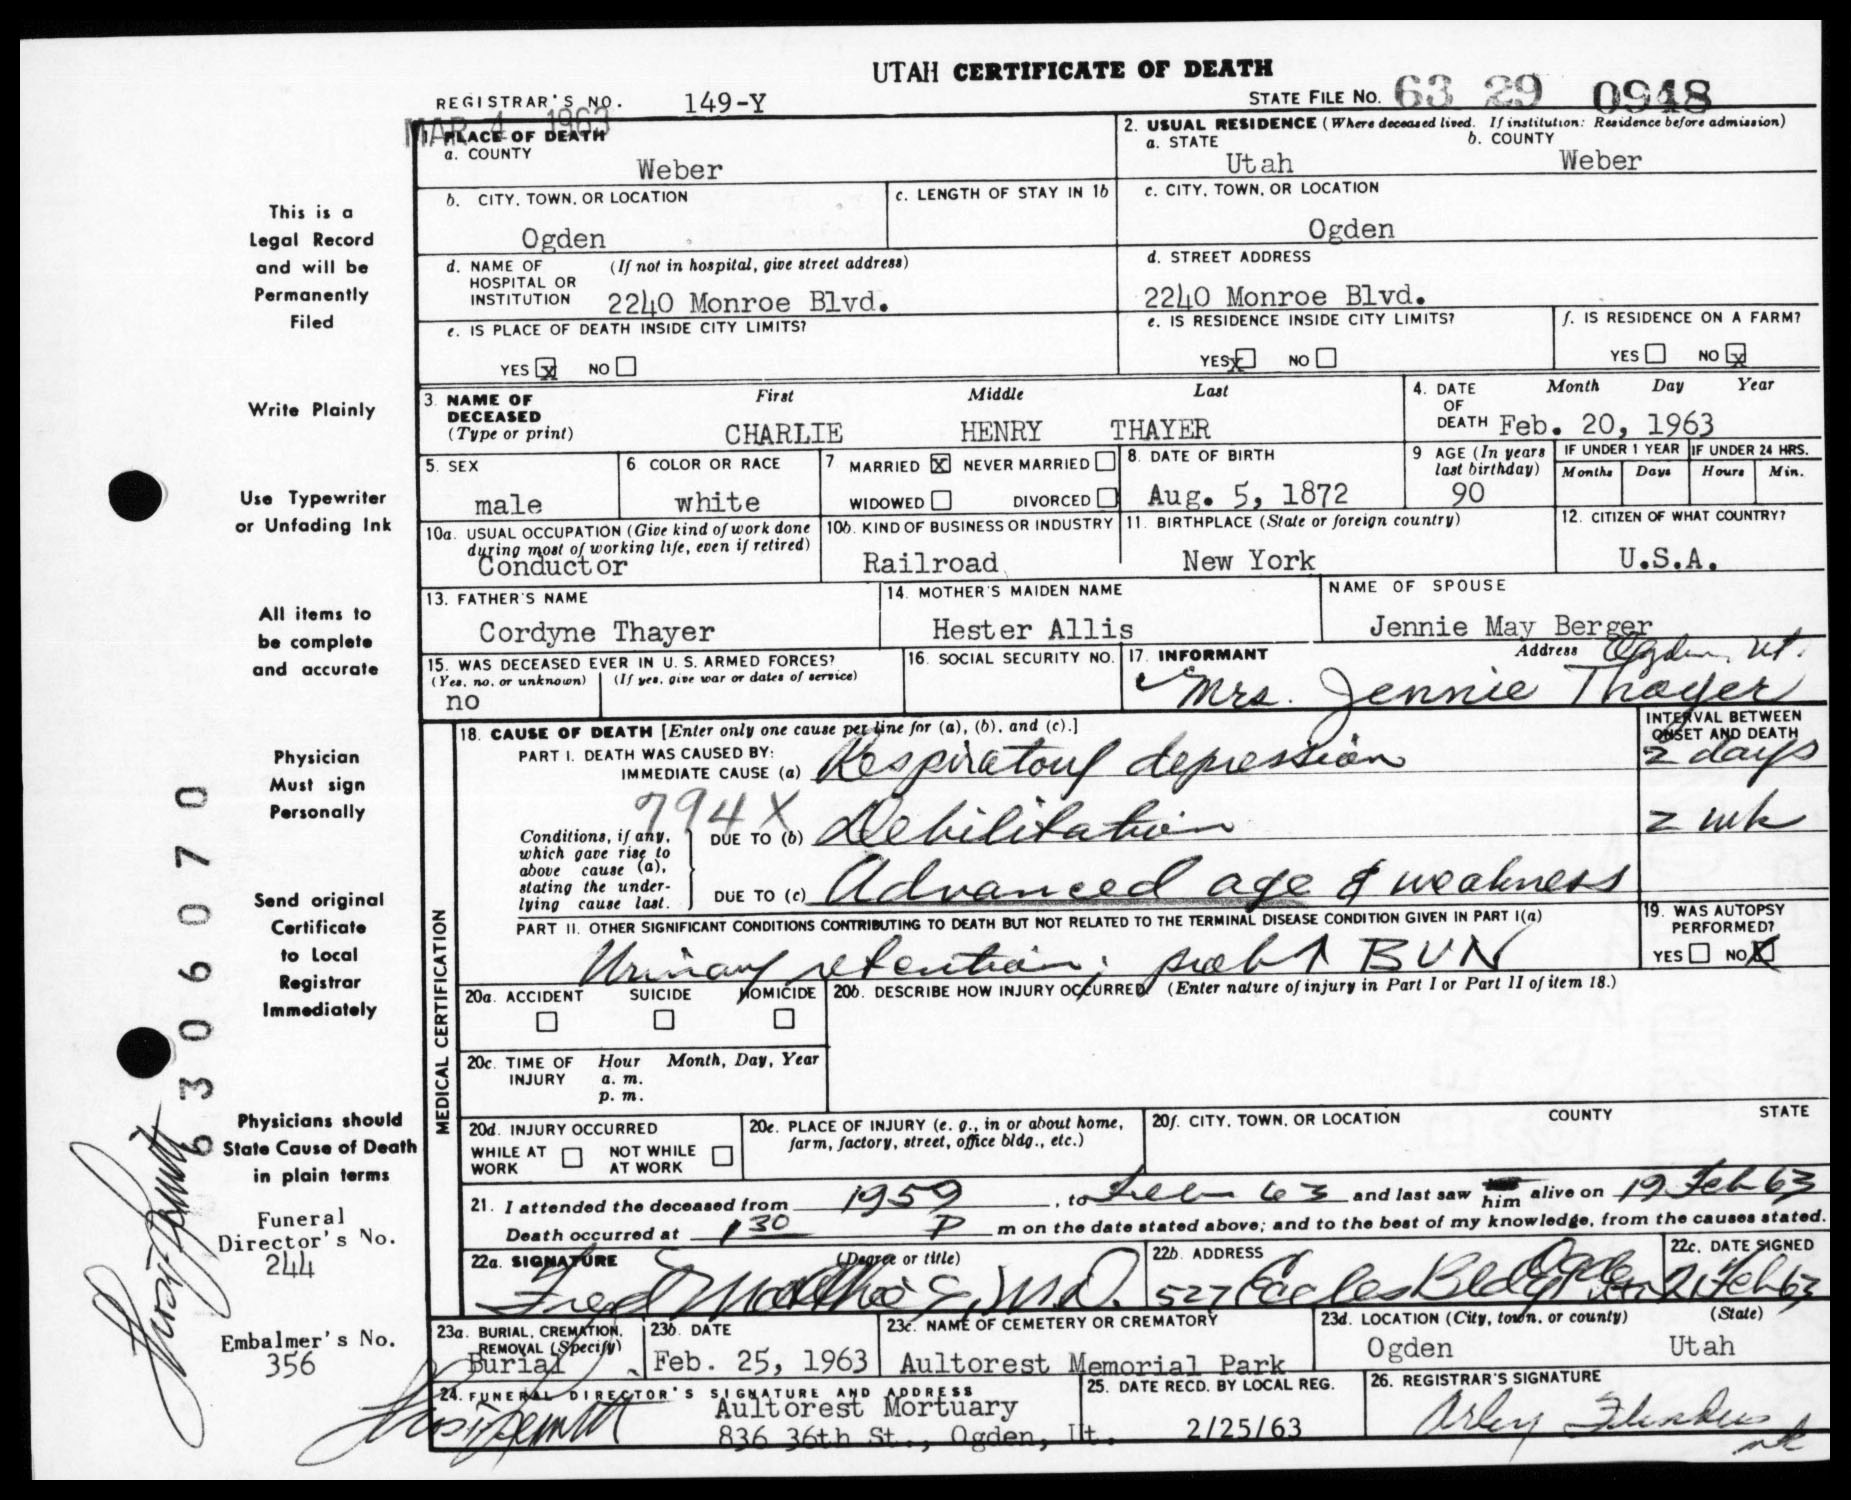 UTAH CERTIFICATE OF DEATH
REGISTRAR'S NO. 149-Y
STATE FILE NO. 63 29 0948
MAR 4 1963
1. PLACE OF DEATH
a. COUNTY
Weber
2. USUAL RESIDENCE (Where deceased lived. If institution: Residence before admission)
a. STATE b. COUNTY
Utah Weber
b. CITY, TOWN, OR LOCATION
Ogden
c. LENGTH OF STAY IN 1b
c. CITY, TOWN, OR LOCATION
Ogden
d. NAME OF (If not in hospital, give street address)
HOSPITAL OR
INSTITUTION 2240 Monroe Blvd.
d. STREET ADDRESS
2240 Monroe Blvd.
e. IS PLACE OF DEATH INSIDE CITY LIMITS?
YES x NO
e. IS RESIDENCE INSIDE CITY LIMITS?
YES x NO
f. IS RESIDENCE ON A FARM?
YES NO x
3. NAME OF DECEASED (Type or print)
First Middle Last
CHARLIE HENRY THAYER
4. DATE OF DEATH Month Day Year
Feb. 20, 1963
5. SEX
male
6. COLOR OR RACE
white
7. MARRIED X NEVER MARRIED
WIDOWED DIVORCED
8. DATE OF BIRTH
Aug. 5, 1872
9 AGE (In years last birthday)
90
IF UNDER 1 YEAR IF UNDER 24 HRS.
Months Days Hours Min.
10a. USUAL OCCUPATION (Give kind of work done
during most of working life, even if retired)
Conductor
10b. KIND OF BUSINESS OR INDUSTRY
Railroad
11. BIRTHPLACE (State or foreign country)
New York
12. CITIZEN OF WHAT COUNTRY?
U.S.A.
13. FATHER'S NAME
Cordyne Thayer
14. MOTHER'S MAIDEN NAME
Hester Allis
NAME OF SPOUSE
Jennie May Berger
15. WAS DECEASED EVER IN U.S. ARMED FORCES?
(Yes, no, or unknown) (If yes, give war or dates of service)
no
16. SOCIAL SECURITY NO.
17. INFORMANT Address Ogden, Ut.
Mrs. Jennie Thayer
MEDICAL CERTIFICATION
18. CAUSE OF DEATH [Enter only one cause per line for (a), (b), and (c).]
INTERVAL BETWEEN
ONSET AND DEATH
PART I. DEATH WAS CAUSED BY:
IMMEDIATE CAUSE (a) Respiratory depression 2 days
794X
Conditions, if any,
which gave rise to
above cause (a),
stating the under-
lying cause last.
DUE TO (b) Debilitation 2 wk
DUE TO (c) Advanced age & weakness
PART II. OTHER SIGNIFICANT CONDITIONS CONTRIBUTING TO DEATH BUT NOT RELATED TO THE TERMINAL DISEASE CONDITION GIVEN IN PART I(a)
Urinary retention; prob ↑ BUN
19. WAS AUTOPSY
PERFORMED?
YES NO X
20a. ACCIDENT SUICIDE HOMICIDE
20b. DESCRIBE HOW INJURY OCCURRED. (Enter nature of injury in Part I or Part II of item 18.)
20c. TIME OF INJURY Hour Month, Day, Year
a. m.
p. m.
20d. INJURY OCCURRED
WHILE AT WORK NOT WHILE AT WORK
20e. PLACE OF INJURY (e. g., in or about home,
farm, factory, street, office bldg., etc.)
20f. CITY, TOWN, OR LOCATION COUNTY STATE
21. I attended the deceased from 1959, to Feb 63 and last saw him alive on 19 Feb 63
Death occurred at 1 30 P m on the date stated above; and to the best of my knowledge, from the causes stated.
22a. SIGNATURE (Degree or title)
Fred M.D.
22b. ADDRESS
527 Eccles Bldg Ogden
22c. DATE SIGNED
21 Feb 63
23a. BURIAL, CREMATION,
REMOVAL (Specify)
Burial
23b. DATE
Feb. 25, 1963
23c. NAME OF CEMETERY OR CREMATORY
Aultorest Memorial Park
23d. LOCATION (City, town, or county) (State)
Ogden Utah
24. FUNERAL DIRECTOR'S SIGNATURE AND ADDRESS
Aultorest Mortuary
836 36th St., Ogden, Ut.
25. DATE RECD. BY LOCAL REG.
2/25/63
26. REGISTRAR'S SIGNATURE
This is a
Legal Record
and will be
Permanently
Filed
Write Plainly
Use Typewriter
or Unfading Ink
All items to
be complete
and accurate
Physician
Must sign
Personally
Send original
Certificate
to Local
Registrar
Immediately
Physicians should
State Cause of Death
in plain terms
Funeral
Director's No.
244
Embalmer's No.
356
6306070